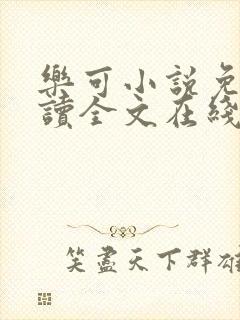 樂可小說免
讀全文在綫
笑盡天下群雄